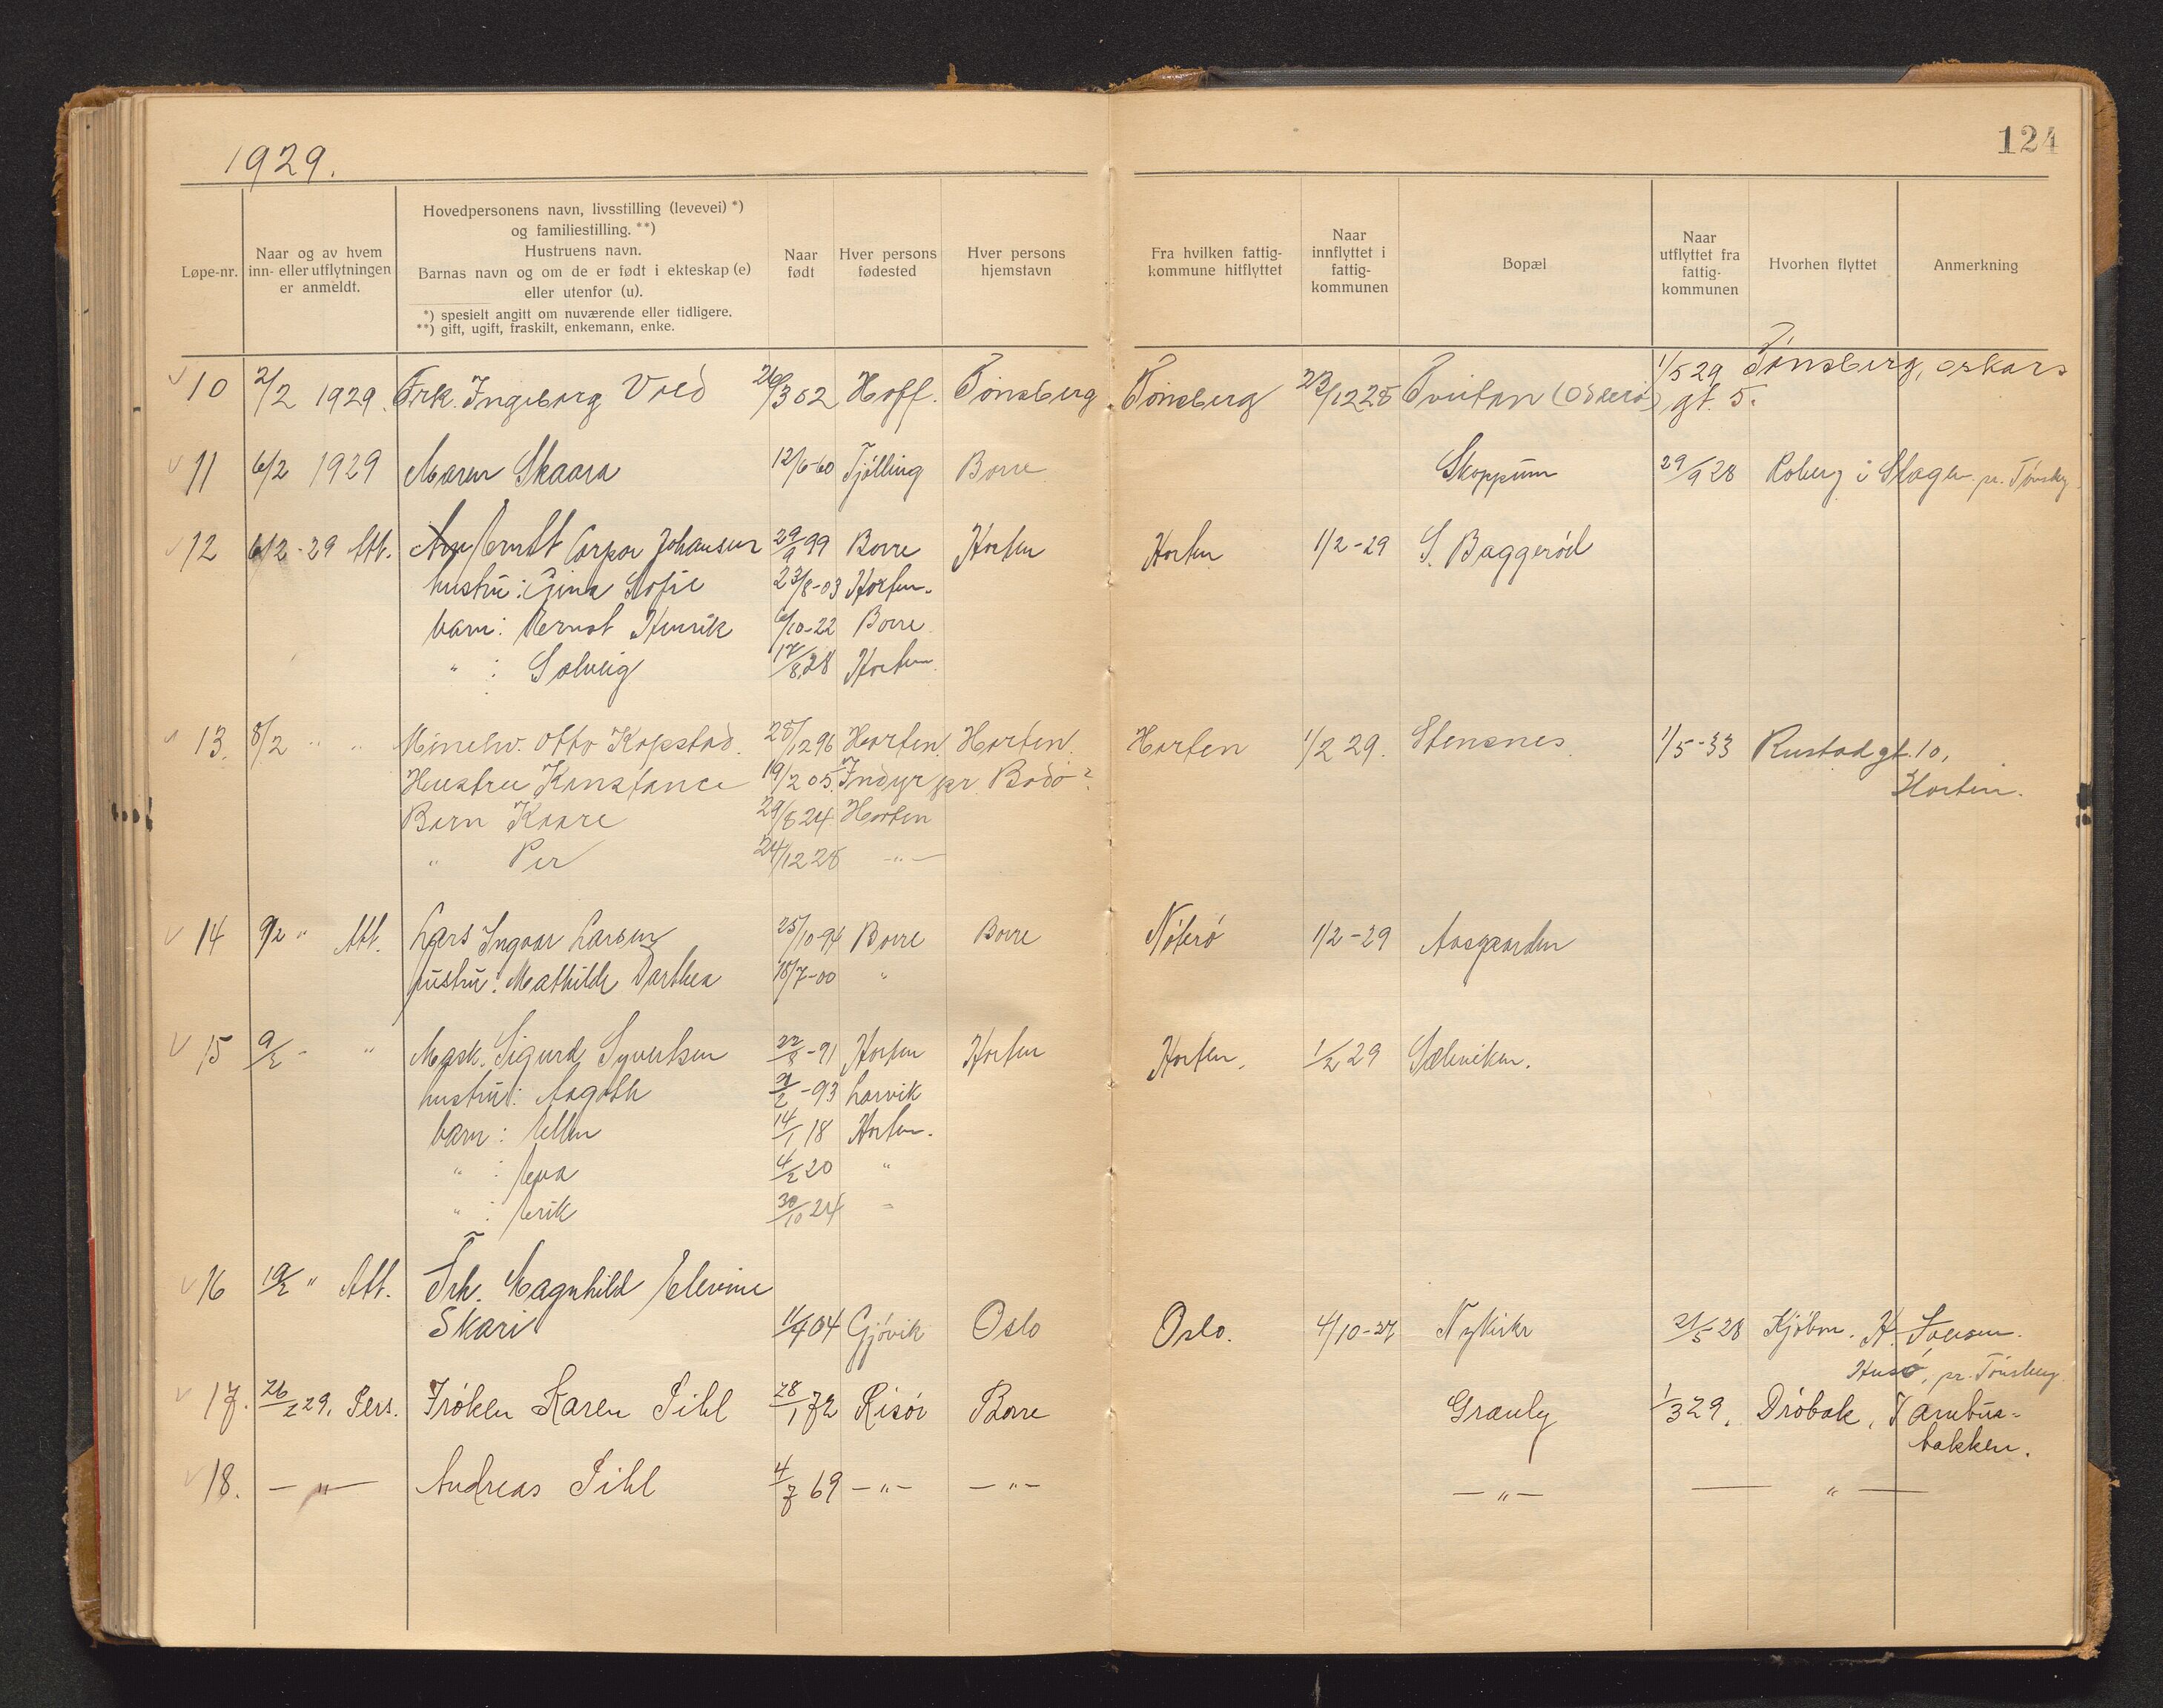 124
1929.
Løpe-nr.
Naar og av hvem
inn- eller utflytningen
er anmeldt.
Hovedpersonens navn, livsstilling (levevei) *)
og familiestilling. **)
Hustruens navn.
Barnas navn og om de er født i ekteskap (e)
eller utenfor (u).
*) spesielt angitt om nuværende eller tidligere.
**) gift, ugift, fraskilt, enkemann, enke.
Naar
født
Hver persons
fødested
Hver persons
hjemstavn
Fra hvilken fattig-
kommune hitflyttet
Naar
innflyttet i
fattig-
kommunen
Bopæl
Naar
utflyttet fra
fattig-
kommunen
Hvorhen flyttet
Anmerkning
10 2/2 1929. Frk. Ingeborg Vold 26/3 62 Hoff. Tönsberg Tönsberg 23/12 28 Tveitan 1/5 29 Tönsberg, Oskars
gt. 5.
11 6/2 1929 Maren Skaara 12/6-60 Tjölling Borre Skoppum 29/9 28 Roberg i Slagen pr. Tönsbg.
12 6/2-29 Att. Ernst Johansen 29/9 99 Borre Horten Horten 1/2-29 S. Baggerød
hustru: Gina Sofie 23/8-03 Horten.
barn: Ernst Henrik 6/10-22 Borre
" : Solveig 17/8 28 Horten.
13. 8/2 " " Minelw. Otto Kopstad. 28/12 96 Horten. Horten. Horten 1/2 29. Stensnes. 1/5-33 Rustadgt. 10,
Horten.
Hustru Konstance 19/2 05. Indyr pr. Bodö?
Barn Kaare 29/8 24 Horten
" Per 24/12 28 -"-
14 9/2 " Att. Lars Ingvar Larsen 25/10-94 Borre Borre Nöterö 1/2-29 Aasgaarden
hustru: Mathilde Dorthea 18/7-00 "
15 9/2 - " Mask. Sigurd Syvertsen 22/8-91 Horten Horten Horten. 1/2 29 Sælaviken.
hustru: Aagoth -93 Larvik
barn: Ellen 14/1 18 Horten.
" : Eva 4/2 20 "
" : Erik 30/10 24 -
16 19/2 " Att. Frk. Magnhild Elevine
Skari 11/4 04 Gjövik Oslo Oslo. 4/10-27 Nykirke 21/5-28 Kjöbm. H. Iversen.
Husö, pr. Tönsberg.
17. 26/2 29. Pers. Fröken Karen Pihl 28/1 72 Risör Borre Granly 1/3 29. Dröbak, Tambus-
bakken.
18. -"- Andreas Pihl 4/7 69 -"- -"- -"- -"-